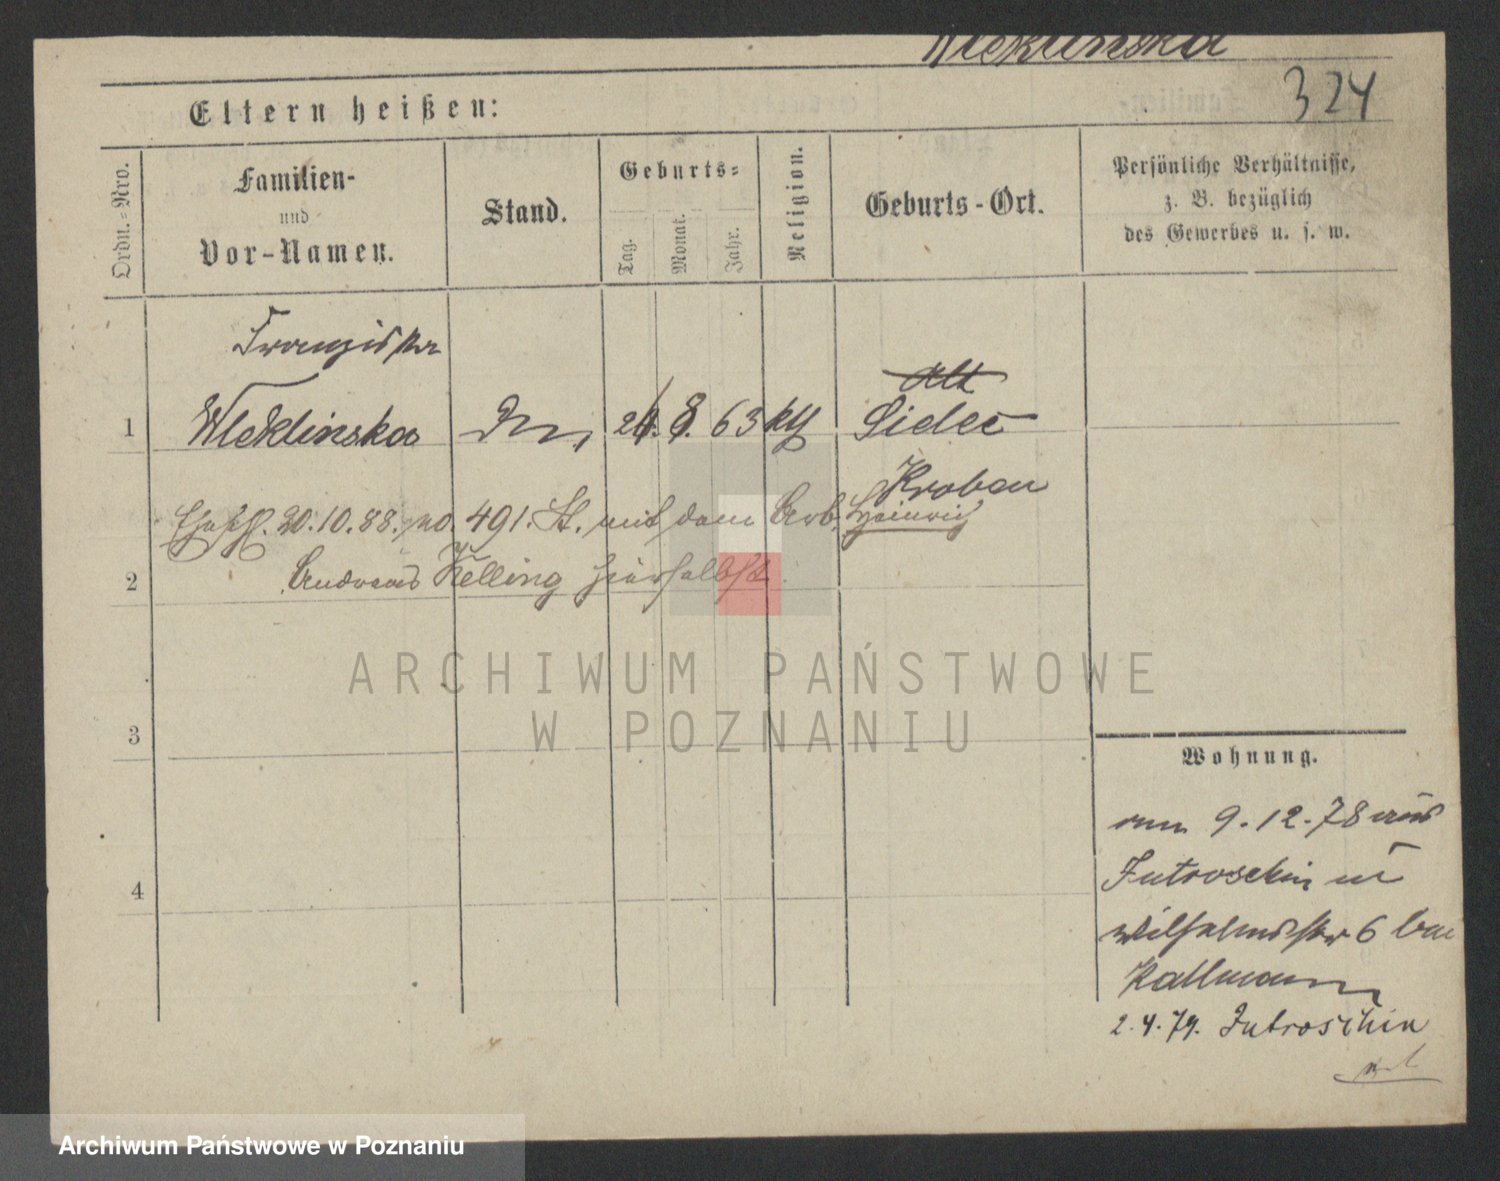 Wleklinska
324
Eltern heißen:
Ordn.-Nro.
Familien-
und
Vor-Namen.
Stand.
Geburts-
Tag.
Monat.
Jahr.
Religion.
Geburts-Ort.
Persönliche Verhältnisse,
z. B. bezüglich
des Gewerbes u. s. w.
Franziska
Alt
1 Wleklinska 8. 63 kth Siedec
Kroben
20.10.88. no. 491. St. mit dem Arb. Heinrich
2 Andreas Kelling hierselbst.
ARCHIWUM PAŃSTWOWE
W POZNANIU
3
Wohnung.
9.12.78 aus
4 Jutroschin in
Wilhelmsstr 6 bei
Kallmann
2.4.79. Jutroschin
Archiwum Państwowe w Poznaniu